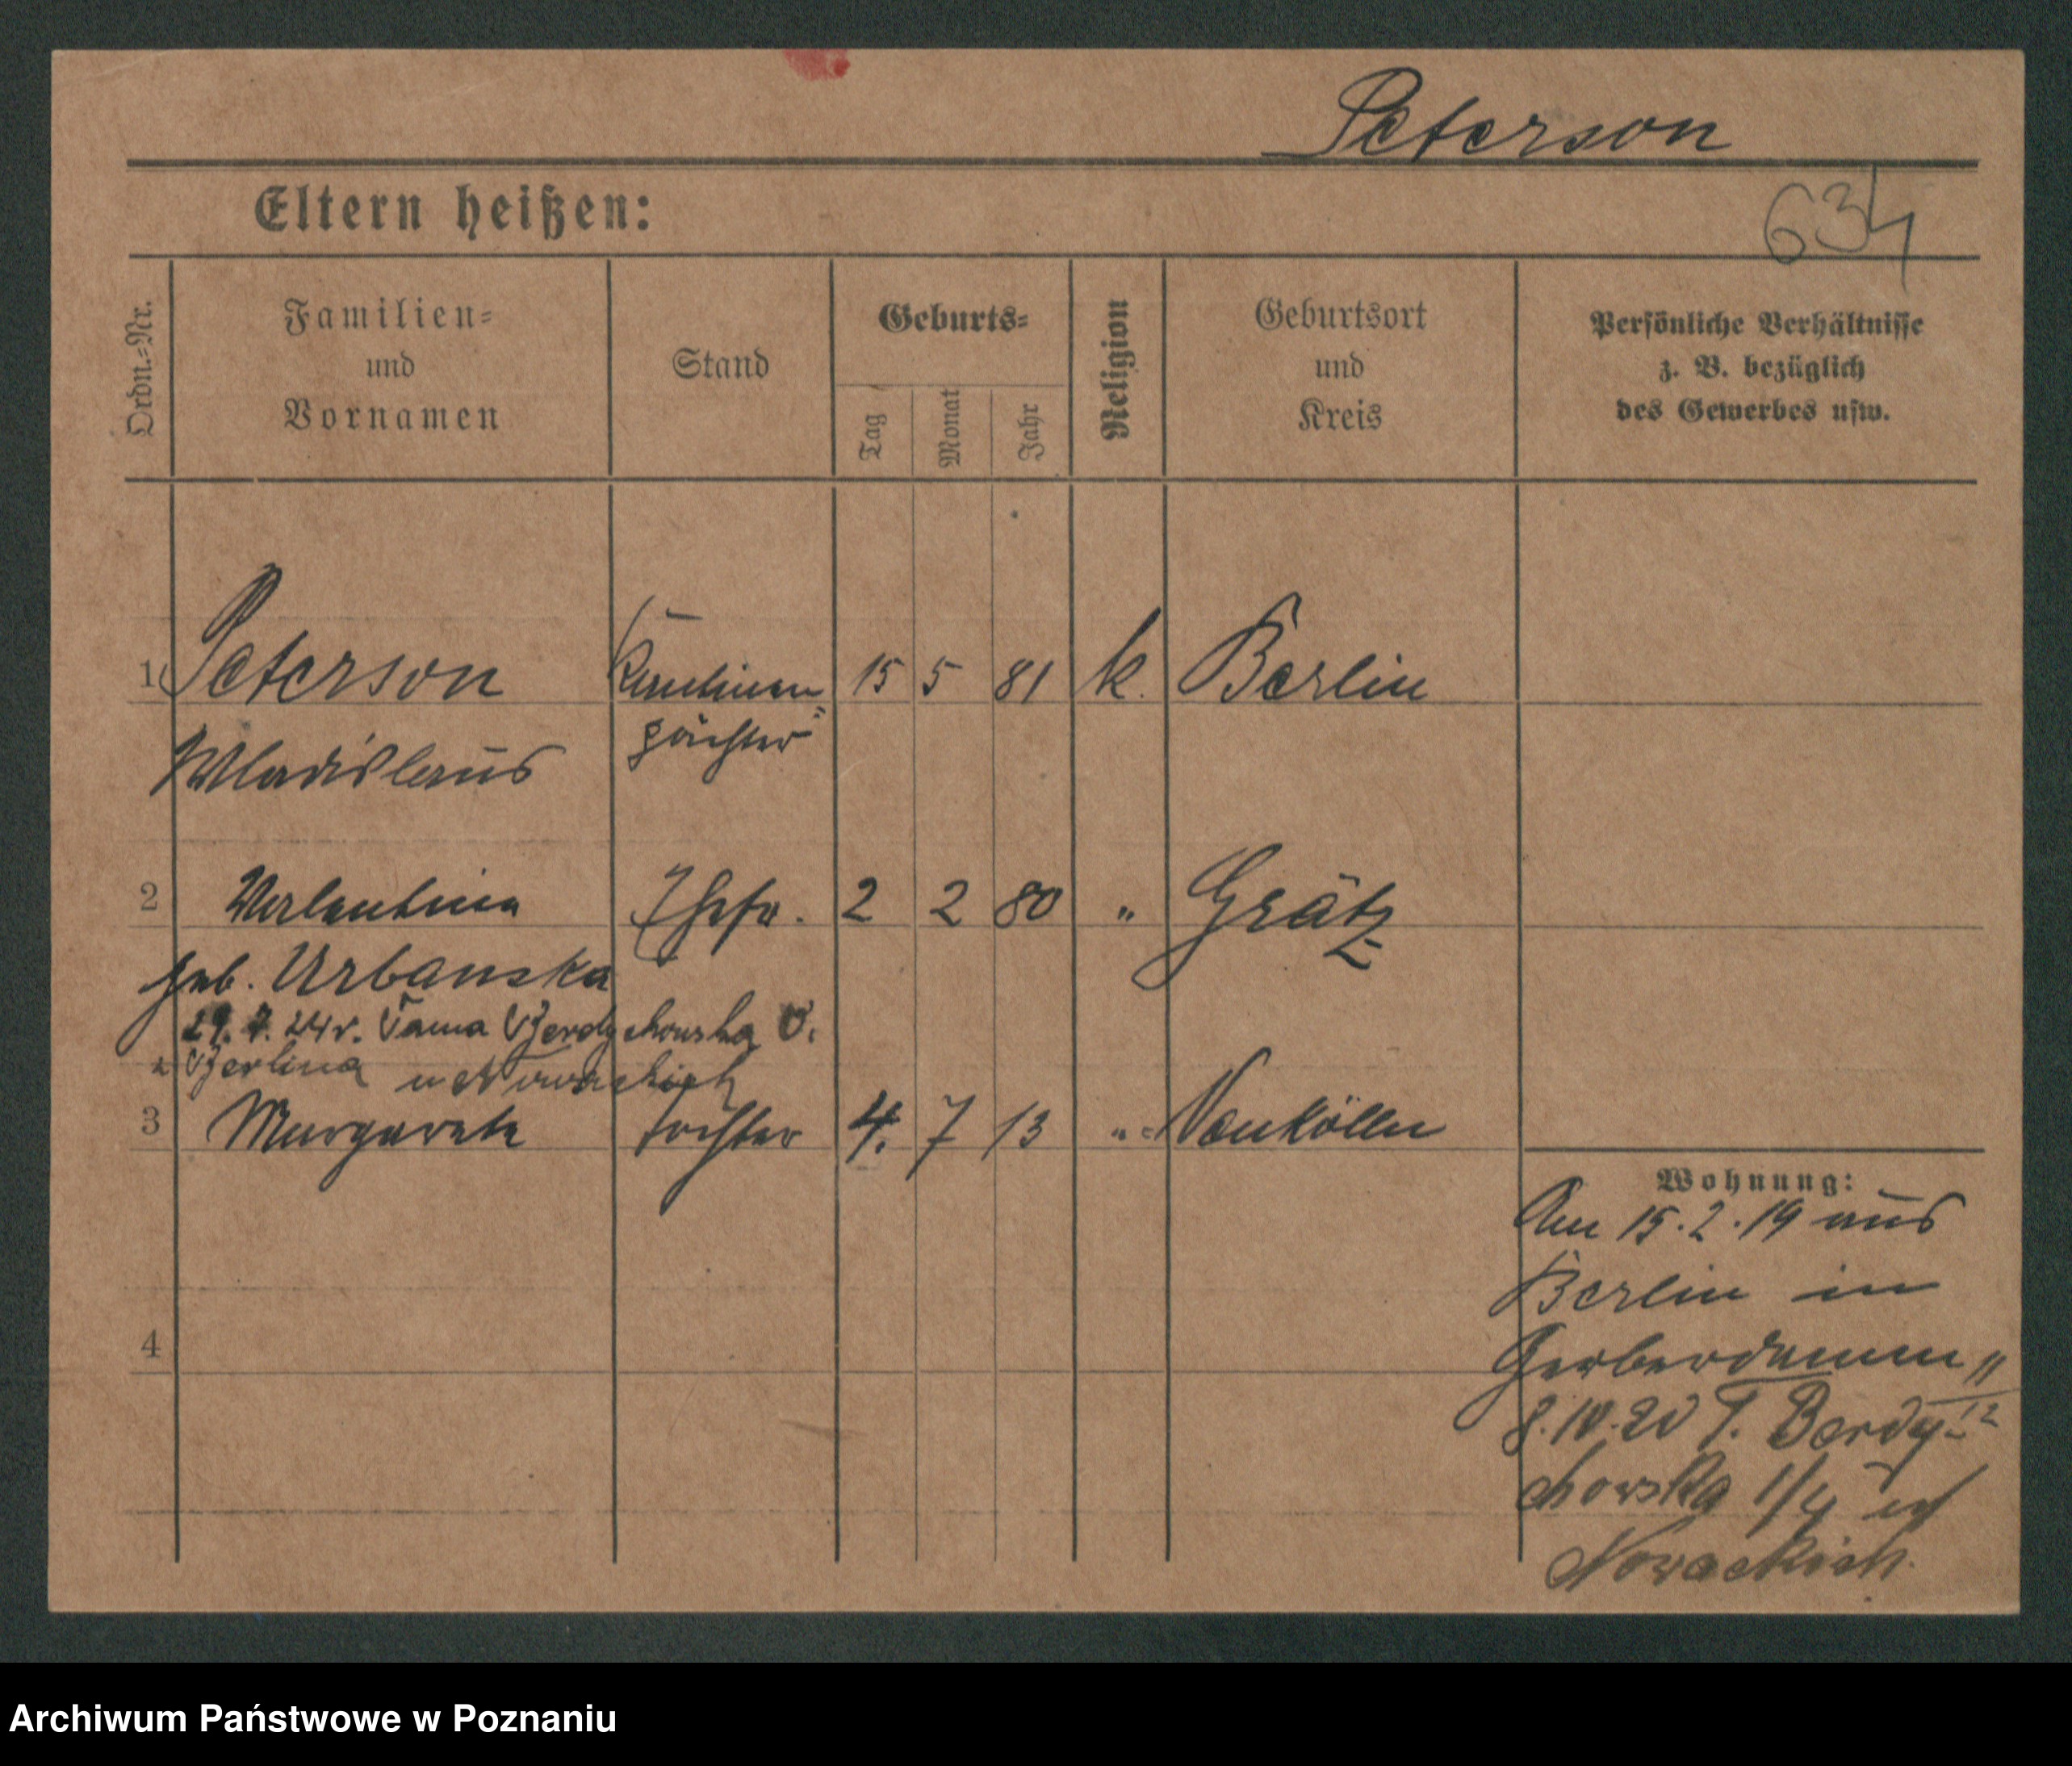 Peterson
634
Eltern heißen:
Ordn.=Nr.
Familien=
und
Vornamen
Stand
Geburts=
Tag
Monat
Jahr
Religion
Geburtsort
und
Kreis
Persönliche Verhältnisse
z. B. bezüglich
des Gewerbes usw.
1 Peterson Kantinen= 15 5 81 k. Berlin
Wladislaus pächter
2 Valentina Ehefr. 2 2 80 " Grätz
geb. Urbanska
29. 7. 24 r. Tama Berdychowska
z Berlina u Nowackich
3 Margarete Tochter 4. 7 13 " Neukölln
Wohnung:
Am 15.2.19 aus
Berlin in
Gerberdamm 11
8.10.20 T. Berdy- 12
chowska 1/4
Nowackich.
4
Archiwum Państwowe w Poznaniu